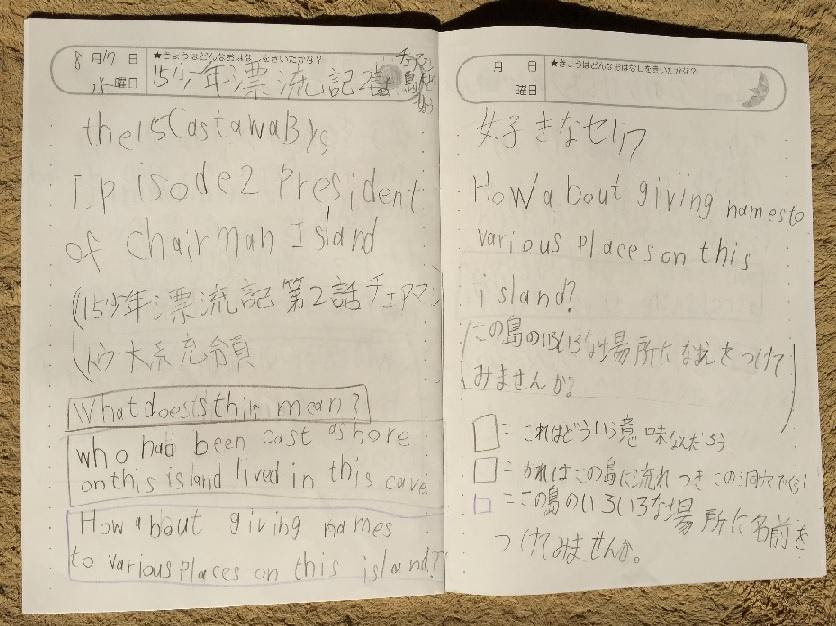 8月17日
水曜日
★きょうはどんなおはなしをきいたかな?
15少年漂流記2話
チェアマン
島
the15CastawaBys
Episode2 President
of chairman Island
(15少年漂流記第2話チェアマン
What doests this mean?
who had been cast ashore
on this island lived in this cave
How about giving names
to various places on this island?
月 日
曜日
★きょうはどんなおはなしをきいたかな?
好きなセリフ
How about giving names to
various places on this
island?
(この島のいろいろな場所になまえをつけて
みませんか?)
=これはどういう意味なんだろう
=かれはこの島に流れつきこの洞穴で
=この島のいろいろな場所に名前を
つけてみませんか。